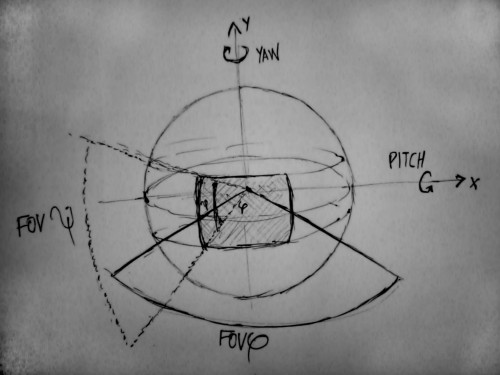 Y
YAW
PITCH
X
FOV ψ
φ
FOVφ